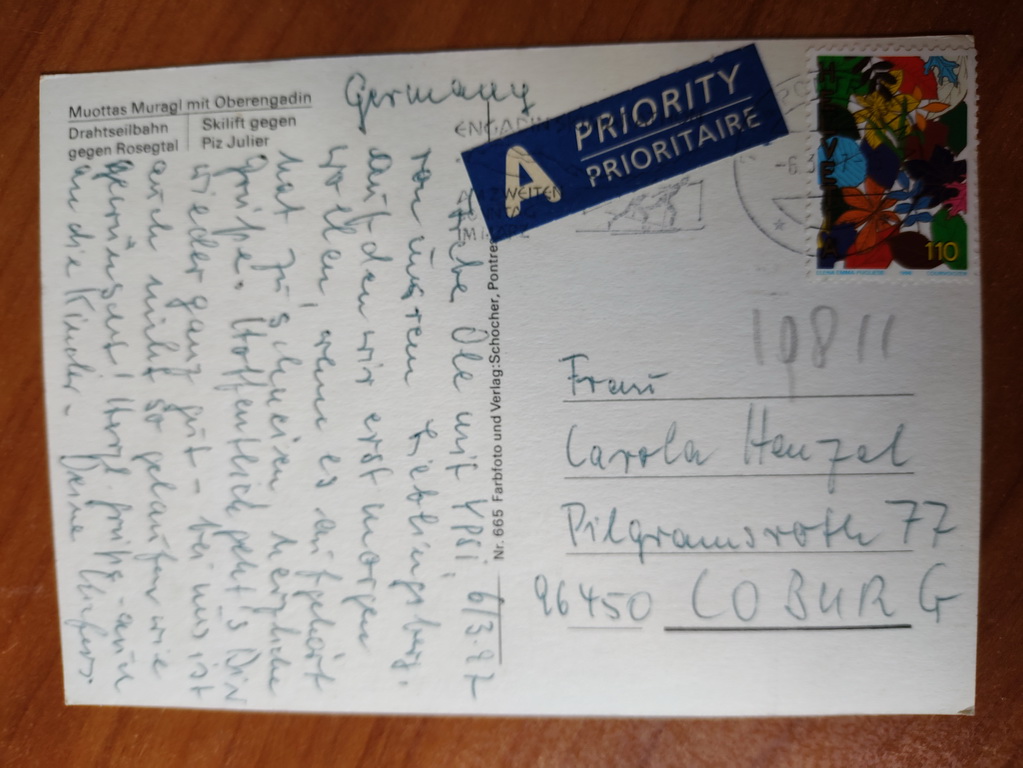 Muottas Muragl mit Oberengadin
Drahtseilbahn
gegen Rosegtal
Skilift gegen
Piz Julier
Germany
A PRIORITY
PRIORITAIRE
ENGADIN
ZWEITEN
HELVETIA
110
Nr. 665 Farbfoto und Verlag: Schocher, Pontres
6/3.97
Liebe Ole mit YPSi,
von unserem Lieblingsberg,
auf den wir erst morgen
wollen, wenn es aufgehört
hat zu schneien herzliche
Grüße. Hoffentlich geht's Dir
wieder ganz gut – bei uns ist
auch nicht so gelaufen wie
gewünscht! Herzl. Grüße – auch
an die Kinder – Deine
19811
Frau
Carola Henzel
Pilgramsroth 77
96450 COBURG